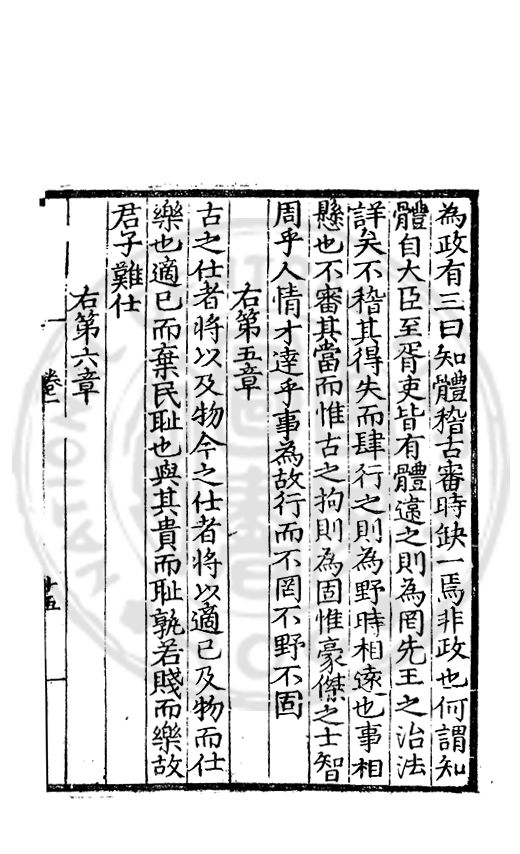 為政有三曰知體稽古審時缺一焉非政也何謂知
體自大臣至胥吏皆有體違之則為罔先王之治法
詳矣不稽其得失而肆行之則為野時相遠也事相
懸也不審其當而惟古之拘則為固惟豪傑之士智
周乎人情才達乎事為故行而不罔不野不固
右第五章
古之仕者將以及物今之仕者將以適已及物而仕
樂也適已而棄民耻也與其貴而耻孰若賤而樂故
君子難仕
右第六章
卷一
十五